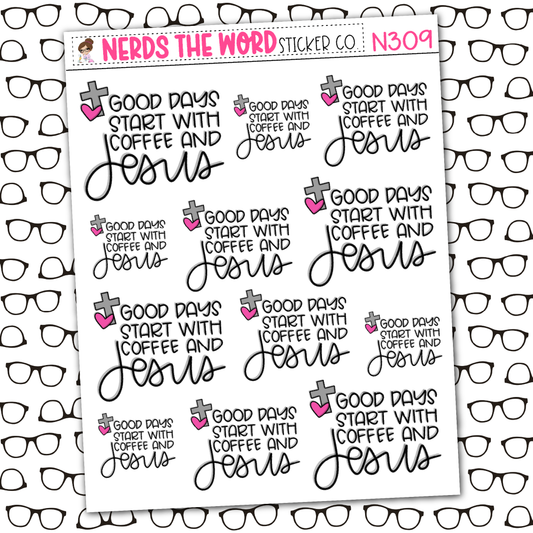 NERDS THE WORD STICKER CO. N309
GOOD DAYS
START WITH
COFFEE AND
Jesus
GOOD DAYS
START WITH
COFFEE AND
Jesus
GOOD DAYS
START WITH
COFFEE AND
Jesus
GOOD DAYS
START WITH
COFFEE AND
Jesus
GOOD DAYS
START WITH
COFFEE AND
Jesus
GOOD DAYS
START WITH
COFFEE AND
Jesus
GOOD DAYS
START WITH
COFFEE AND
Jesus
GOOD DAYS
START WITH
COFFEE AND
Jesus
GOOD DAYS
START WITH
COFFEE AND
Jesus
GOOD DAYS
START WITH
COFFEE AND
Jesus
GOOD DAYS
START WITH
COFFEE AND
Jesus
GOOD DAYS
START WITH
COFFEE AND
Jesus